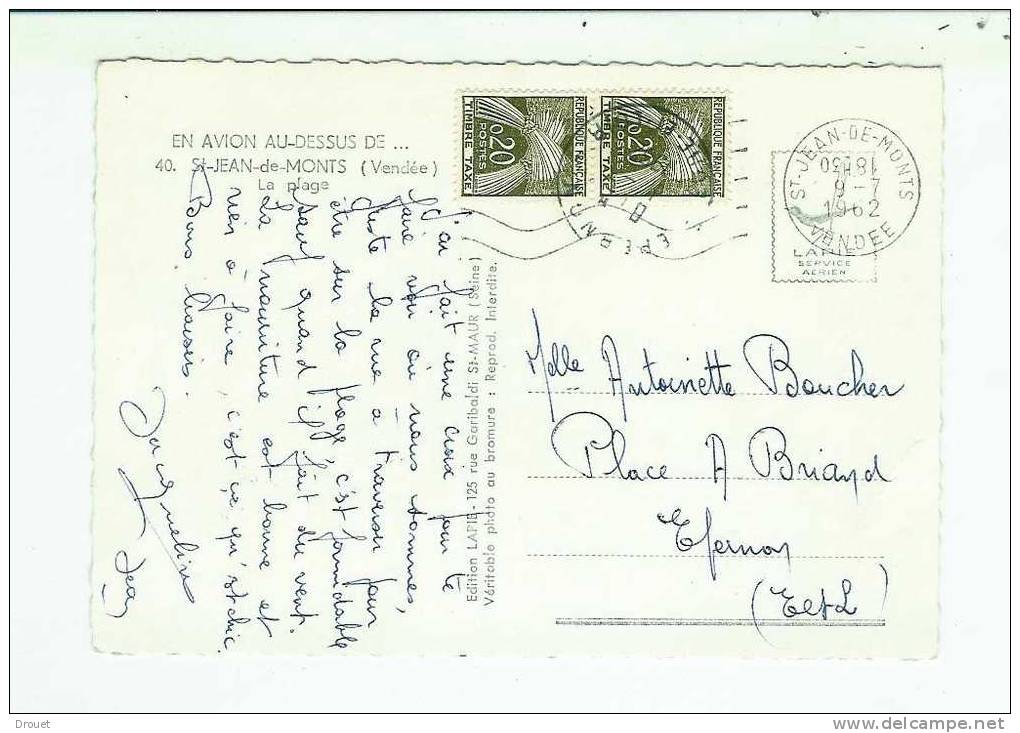 EN AVION AU-DESSUS DE ...
40. St-JEAN-de-MONTS (Vendée)
La plage
J'ai fait une croix pour te
faire voir où nous sommes,
juste la rue à traverser pour
être sur la plage, c'est formidable
sauf quand il fait du vent.
La nourriture est bonne et
rien à faire, c'est ce qu'est chic.
Bons baisers.
Jacqueline
Jean
Edition LAPIE - 125 rue Garibaldi St-MAUR (Seine)
Véritable photo au bromure : Reprod. Interdite.
REPUBLIQUE FRANÇAISE
0,20
POSTES
TIMBRE TAXE
REPUBLIQUE FRANÇAISE
0,20
POSTES
TIMBRE TAXE
EPERNON
ST-JEAN-DE-MONTS
18H30
9-7
1962
VENDEE
LAPIE
SERVICE
AERIEN
Melle Antoinette Boucher
Place A Briand
Epernon
(E et L)
Drouet
www.delcampe.net